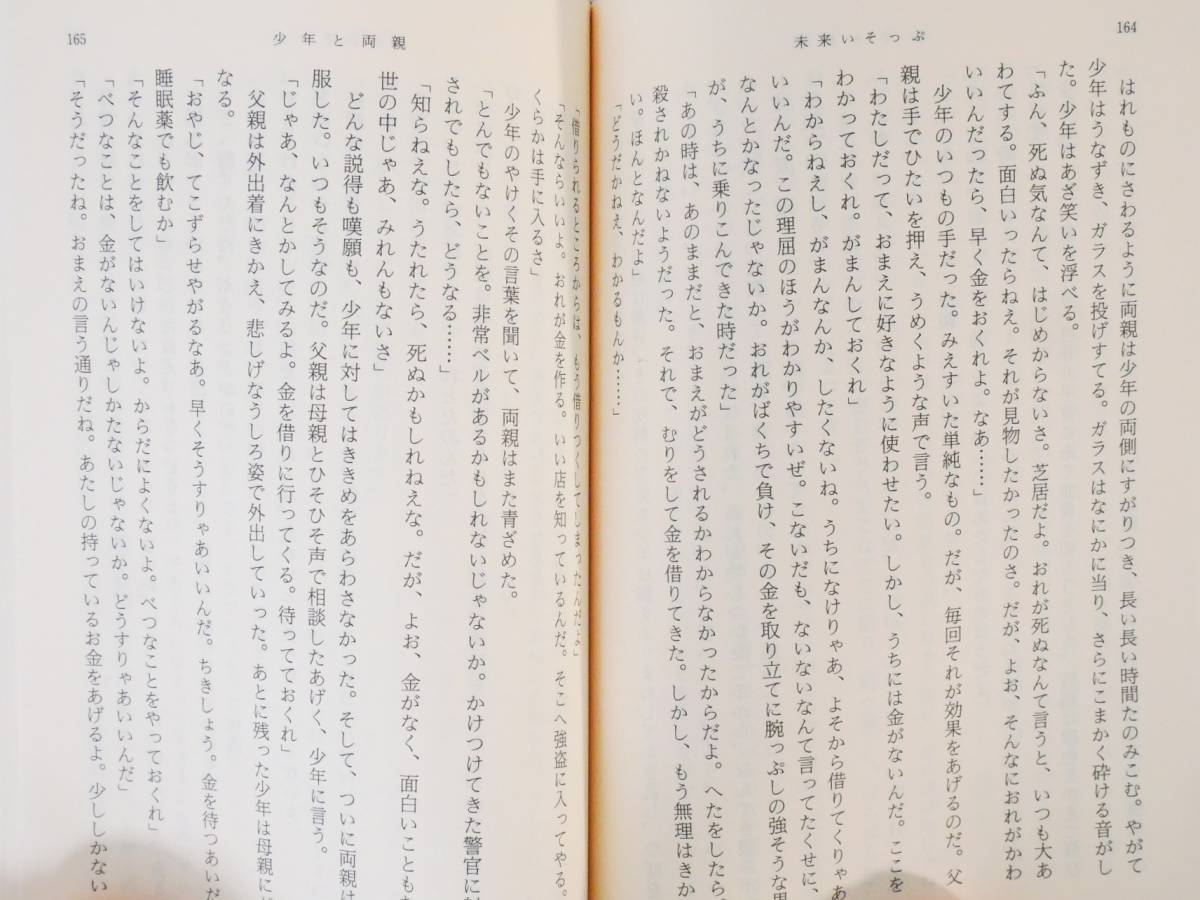 164
未来いそっぷ
はれものにさわるように両親は少年の両側にすがりつき、長い長い時間たのみこむ。やがて
少年はうなずき、ガラスを投げすてる。ガラスはなにかに当り、さらにこまかく砕ける音がし
た。少年はあざ笑いを浮べる。
「ふん、死ぬ気なんて、はじめからないさ。芝居だよ。おれが死ぬなんて言うと、いつも大あ
わてする。面白いったらねえ。それが見物したかったのさ。だが、よお、そんなにおれがかわ
いいんだったら、早く金をおくれよ。なあ……」
少年のいつもの手だった。みえすいた単純なもの。だが、毎回それが効果をあげるのだ。父
親は手でひたいを押え、うめくような声で言う。
「わたしだって、おまえに好きなように使わせたい。しかし、うちには金がないんだ。ここを
わかっておくれ。がまんしておくれ」
「わからねえし、がまんなんか、したくないね。うちになけりゃあ、よそから借りてくりゃあ
いいんだ。この理屈のほうがわかりやすいぜ。こないだも、ないないなんて言ってたくせに、
なんとかなったじゃないか。おれがばくちで負け、その金を取り立てに腕っぷしの強そうな男
が、うちに乗りこんできた時だった」
「あの時は、あのままだと、おまえがどうされるかわからなかったからだよ。へたをしたら、
殺されかねないようだった。それで、むりをして金を借りてきた。しかし、もう無理はきか
い。ほんとなんだよ」
「どうだかねえ、わかるもんか……」
165
少年と両親
「借りられるところからは、もう借りつくしてしまったんだよ」
「そんならいいよ。おれが金を作る。いい店を知っているんだ。そこへ強盗に入ってやる。
くらかは手に入るさ」
少年のやけくその言葉を聞いて、両親はまた青ざめた。
「とんでもないことを。非常ベルがあるかもしれないじゃないか。かけつけてきた警官に
されでもしたら、どうなる……」
「知らねえな。うたれたら、死ぬかもしれねえな。だが、よお、金がなく、面白いことも
世の中じゃあ、みれんもないさ」
どんな説得も嘆願も、少年に対してはききめをあらわさなかった。そして、ついに両親は
服した。いつもそうなのだ。父親は母親とひそひそ声で相談したあげく、少年に言う。
「じゃあ、なんとかしてみるよ。金を借りに行ってくる。待ってておくれ」
父親は外出着にきかえ、悲しげなうしろ姿で外出していった。あとに残った少年は母親に
なる。
「おやじ、てこずらせやがるなあ。早くそうすりゃあいいんだ。ちきしょう。金を待つあいだ
睡眠薬でも飲むか」
「そんなことをしてはいけないよ。からだによくないよ。べつなことをやっておくれ」
「べつなことは、金がないんじゃしかたないじゃないか。どうすりゃあいいんだ」
「そうだったね。おまえの言う通りだね。あたしの持っているお金をあげるよ。少ししかない